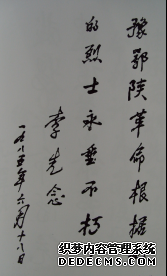 豫鄂陕革命根据
的烈士永垂不朽
李先念
一九八五年六月十八日
织梦内容管理系统
DEDECMS.COM